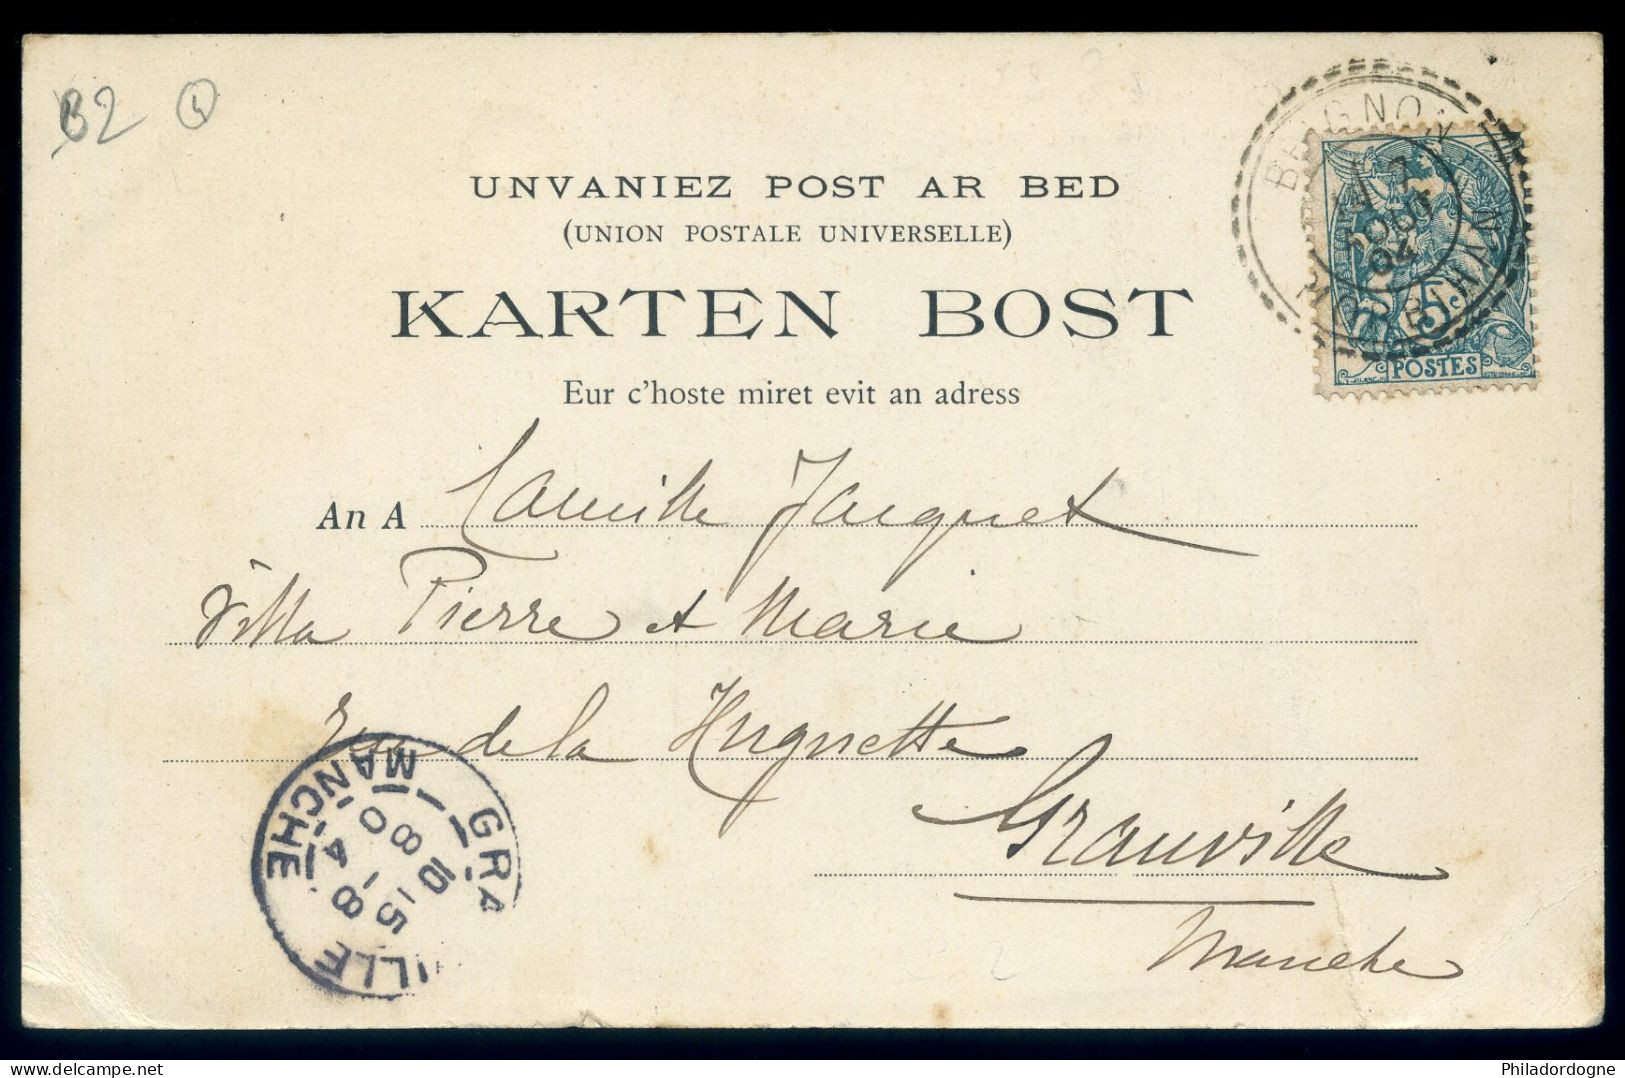 B2
UNVANIEZ POST AR BED
(UNION POSTALE UNIVERSELLE)
KARTEN BOST
Eur c'hoste miret evit an adress
BEIGNON
7
AOUT
04
MORBIHAN
5c
POSTES
An A Camille Jacquet
Villa Pierre et Marie
Rue de la Huguette
Granville
Manche
GRANVILLE
10 15
8 - 8
04
MANCHE
2
Philadordogne